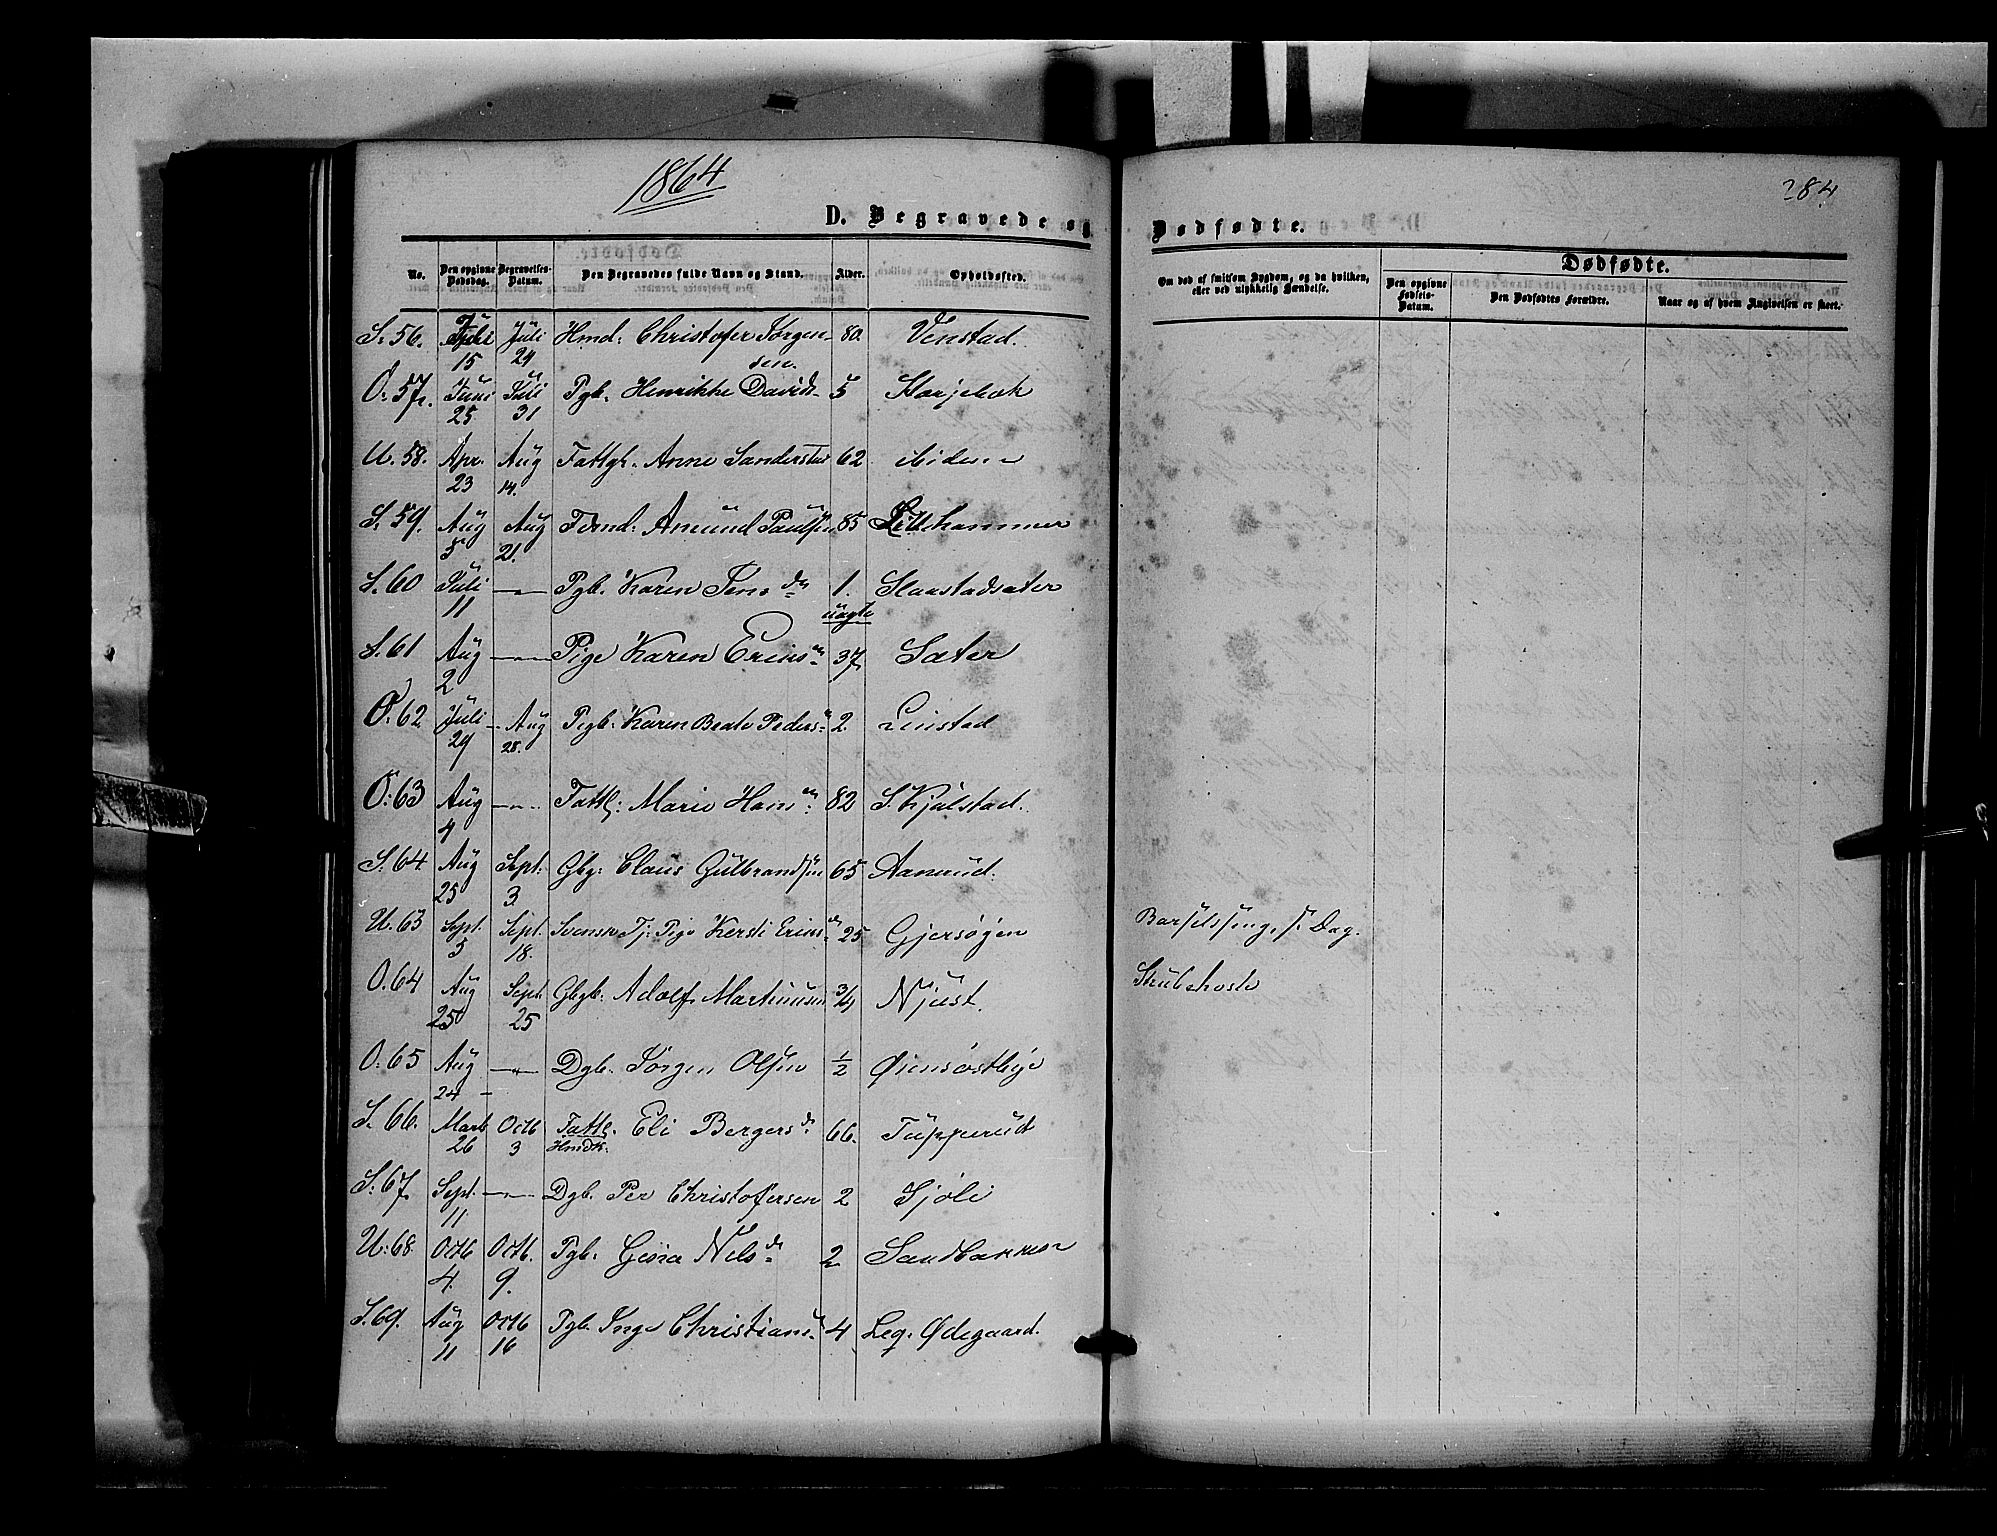 1864
284
D. Begravede og Dødfødte.
No. Den opgivne Dødsdag. Begravelses-Datum. Den Begravedes fulde Navn og Stand. Alder. Opholdssted. Om død af smitsom Sygdom, og da hvilken, eller ved ulykkelig Hændelse. Dødfødte.
Den opgivne Fødsels-Datum. Den Dødfødtes Forældre. Naar og af hvem Angivelsen er skeet.
S. 56. 15 Juli 24 Hmd. Christofer Jørgen- 80. Venstad.
sen.
O. 57. Juni 25 Juli 31 Pgb. Henrikke Davids- 5
U. 58. Apr. 23 Aug 14. Fattgl. Anne 62 ibidem
S. 59. Aug 5 Aug 21. Amund Paulsen 85 Lillehammer
S. 60 Juli 11 — Pgb. Karen Jens dr 1. Slaastadsæter
uægte
S. 61 Aug 2 — Pige Karen Erics dr 37 Sæter
O. 62 Juli 29 Aug 28. Pigb. Karen Beate Peders dr 2. Linstad
O. 63 Aug 4 — Fattl. Marie Hans dr 82 S. Kjølstad.
S. 64 Aug 25 Sept. 3. Gbg. Claus Gulbrandsen 65 Aamrud.
U. 63 Sept. 5 Sept. 18. Svensk Tj. Pige Kersti Erics dr 25 Gjersøgen
O. 64 Aug 25 Sept 25 Gbgb. Adolf Martinusen 3/4 Njust. Strubehoste
O. 65 Aug 24 — Dgb. Jørgen Olsen 1/2 Øiensøstbye
S. 66. Marts 26 Octb 3 Fattl. Eli Bergers dr 66. Tupperud
Hmdk.
S. 67 Sept. 11 — Dgb. Per Christofersen 2 Sjøli
U. 68 Octb 4. Octb. 9. Pgb. Nels dr 2 Sandbakken
S. 69. Aug 11 Octb 16 Pgb. Inge Christians dr 4 Leq. Ødegaard.